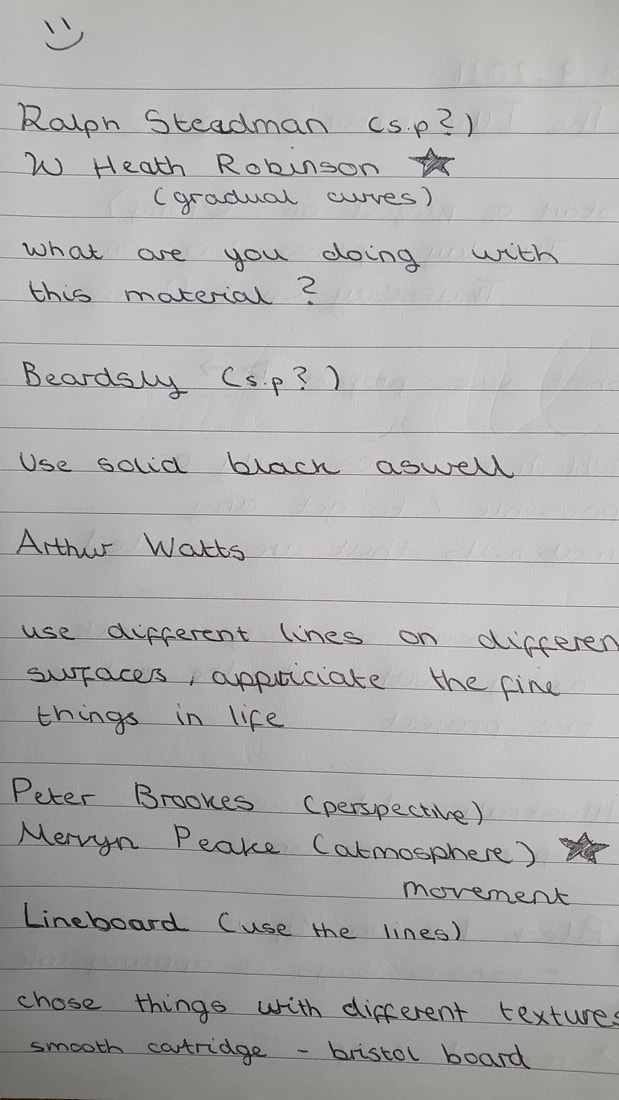 Ralph Steadman (s.p?)
W Heath Robinson ★
(gradual curves)
what are you doing with
this material ?
Beardsly (s.p?)
Use solid black aswell
Arthur Watts
use different lines on differen
surfaces, appriciate the fine
things in life
Peter Brookes (perspective)
Mervyn Peake (atmosphere) ★
movement
Lineboard (use the lines)
chose things with different textures
smooth cartridge - bristol board